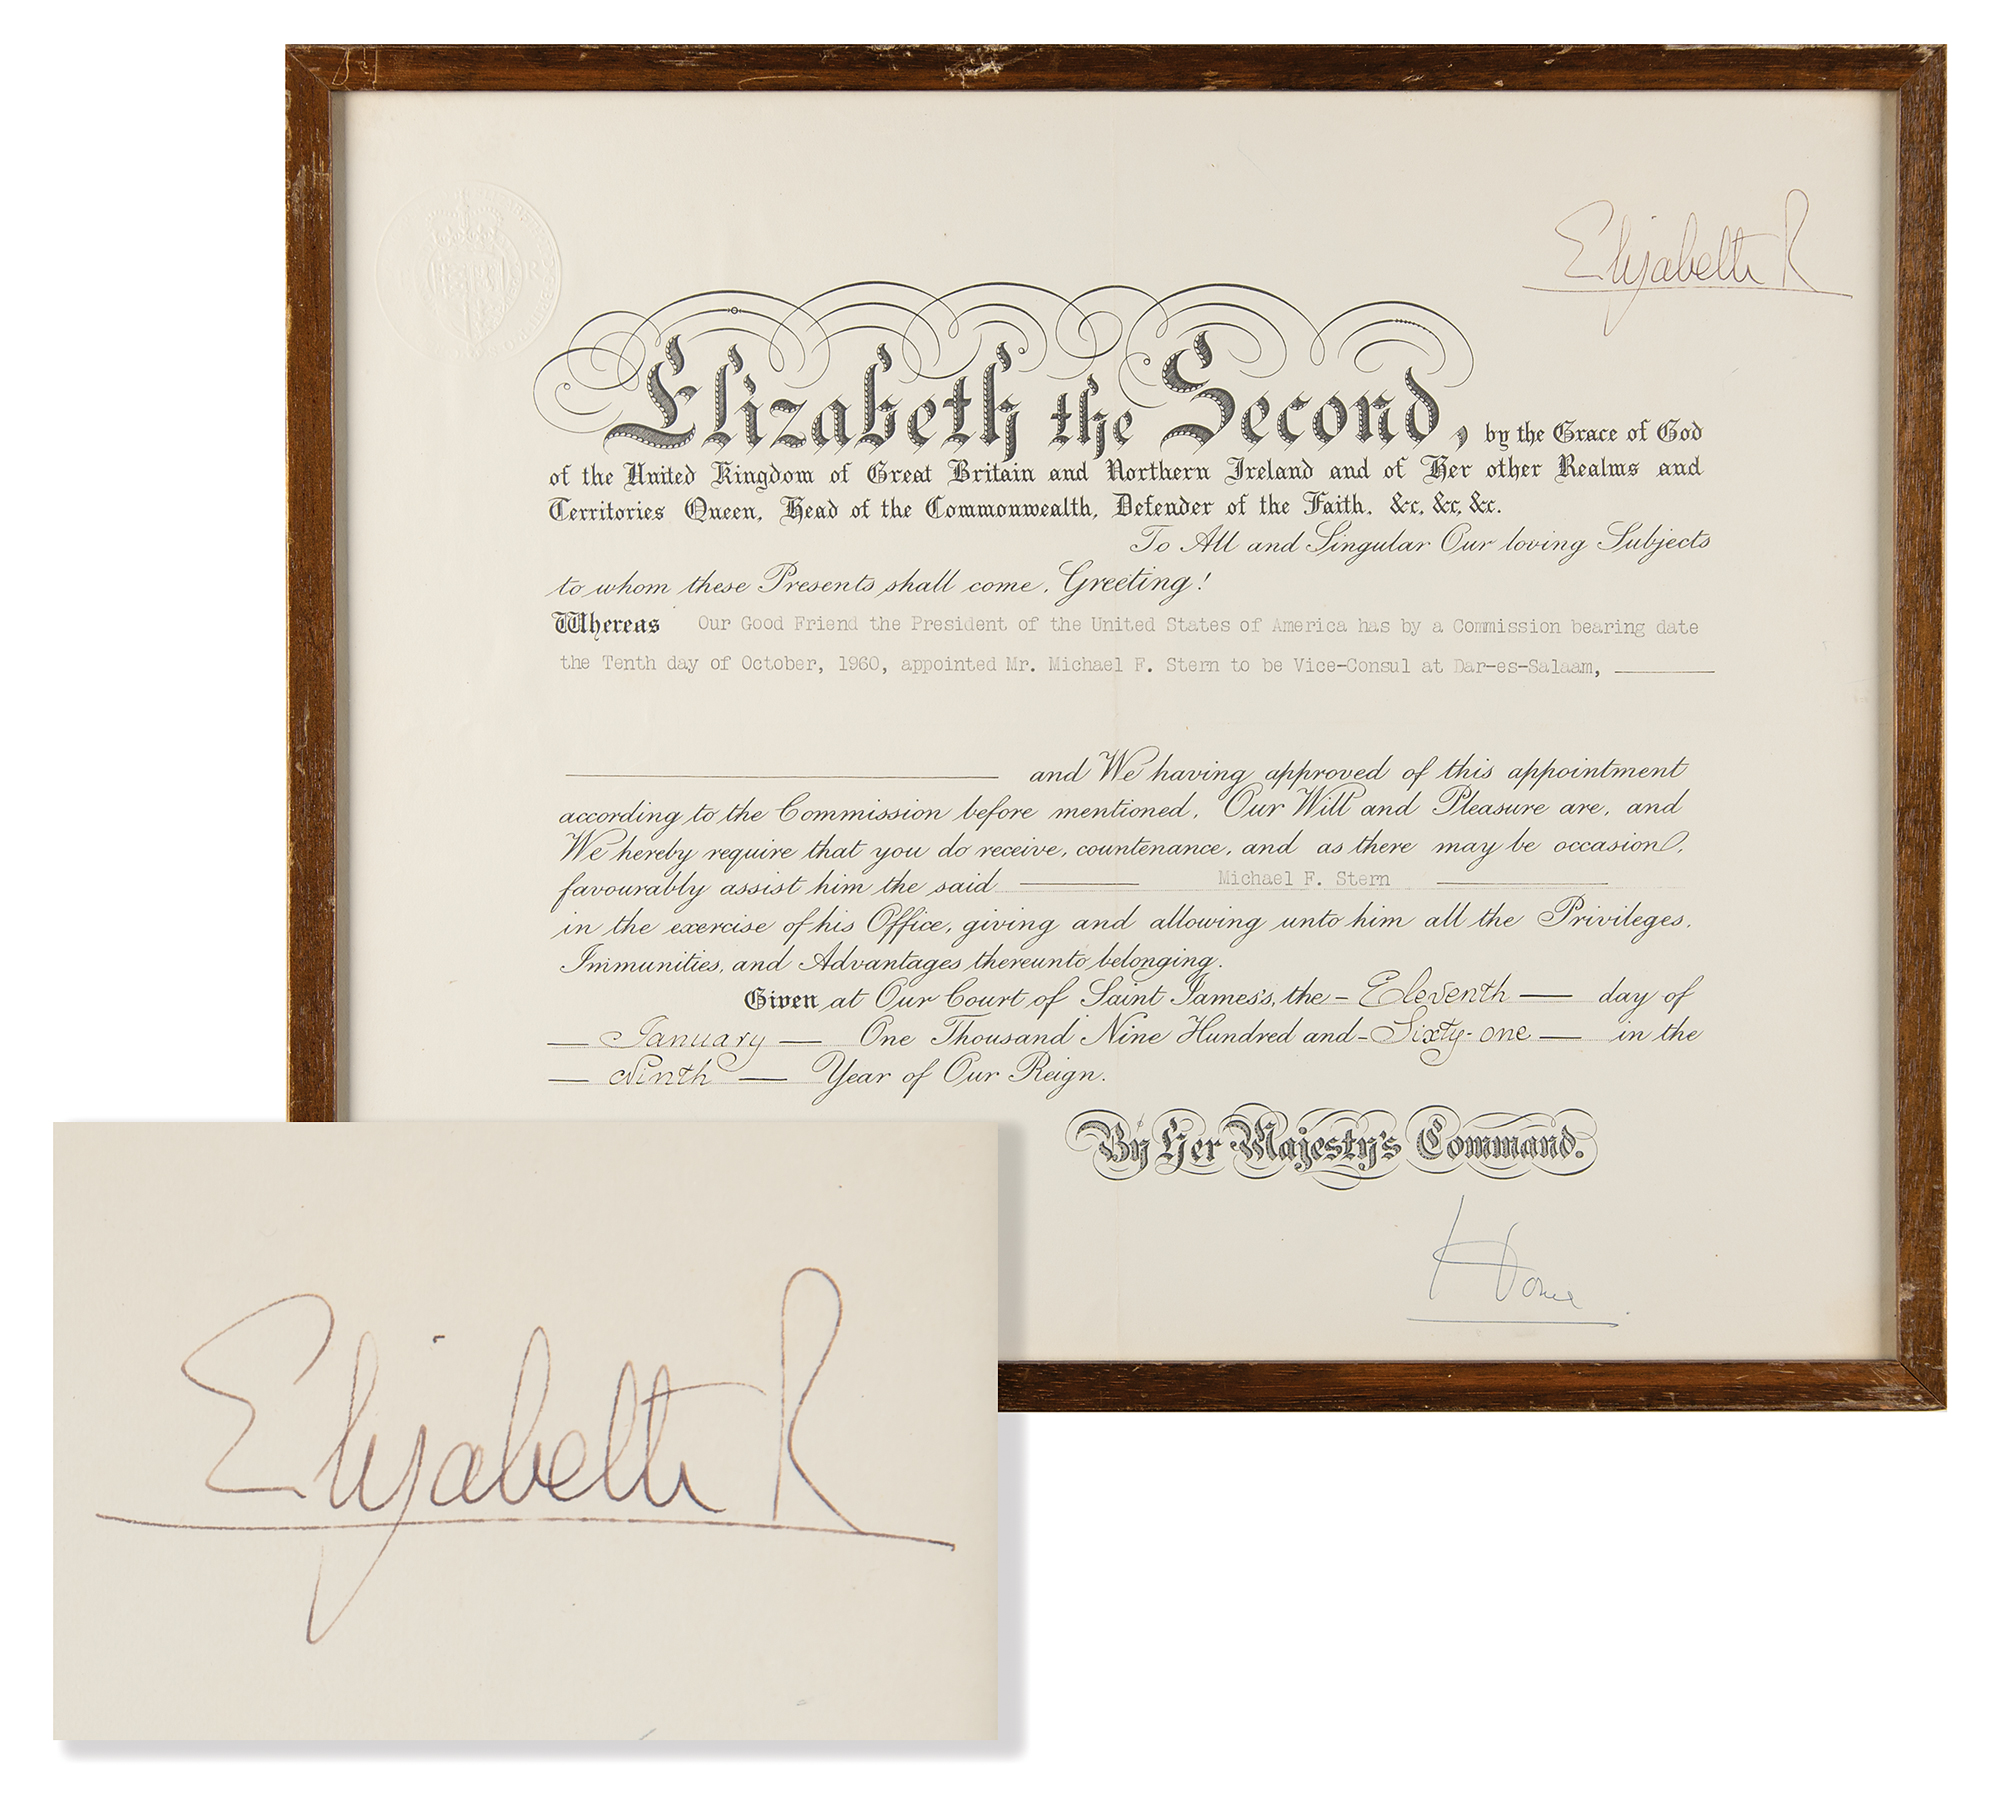 Elizabeth R
Elizabeth the Second, by the Grace of God
of the United Kingdom of Great Britain and Northern Ireland and of Her other Realms and
Territories Queen, Head of the Commonwealth, Defender of the Faith, &c, &c, &c.
To All and Singular Our loving Subjects
to whom these Presents shall come, Greeting!
Whereas Our Good Friend the President of the United States of America has by a Commission bearing date
the Tenth day of October, 1960, appointed Mr. Michael F. Stern to be Vice-Consul at Dar-es-Salaam,
and We having approved of this appointment
according to the Commission before mentioned, Our Will and Pleasure are, and
We hereby require that you do receive, countenance, and as there may be occasion,
favourably assist him the said Michael F. Stern
in the exercise of his Office, giving and allowing unto him all the Privileges,
Immunities, and Advantages thereunto belonging.
Given at Our Court of Saint James's, the - Eleventh — day of
— January — One Thousand Nine Hundred and - Sixty-one — in the
— Ninth — Year of Our Reign.
By Her Majesty's Command.
Home
Elizabeth R